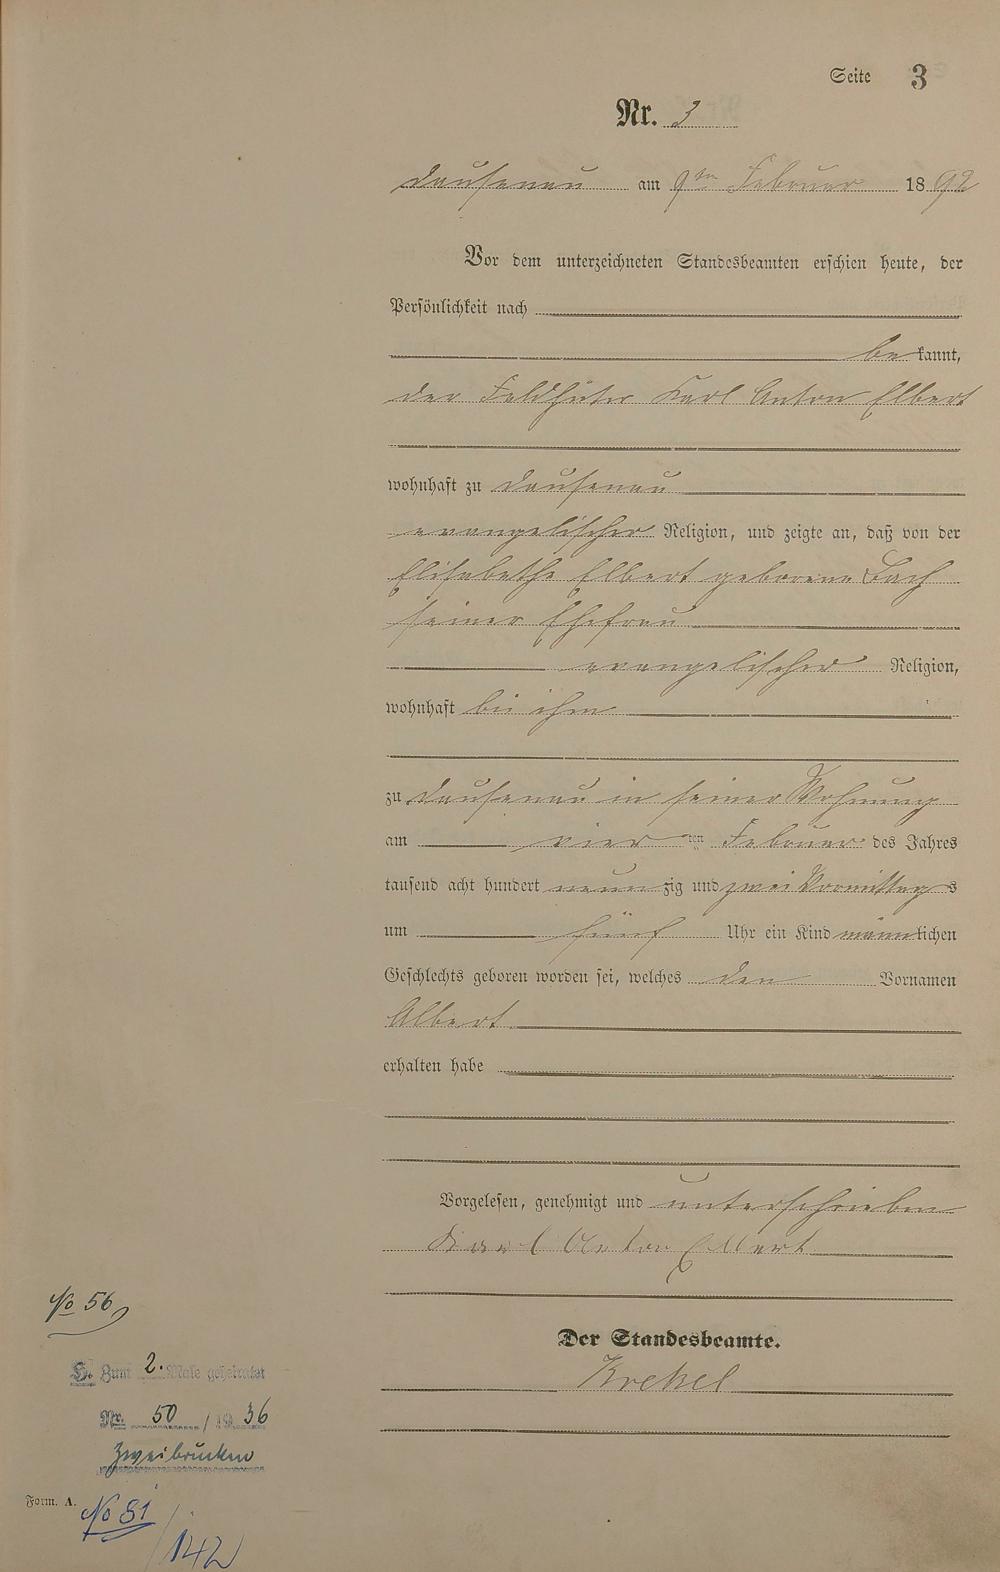 Seite 3
Nr. 3
Dausenau am 9ten Februar 1892
Vor dem unterzeichneten Standesbeamten erschien heute, der
Persönlichkeit nach
bekannt,
der Feldhüter Karl Anton Elbert
wohnhaft zu Dausenau
evangelischer Religion, und zeigte an, daß von der
Elisabethe Elbert geborene Bach
seiner Ehefrau
evangelischer Religion,
wohnhaft bei ihm
zu Dausenau in seiner Wohnung
am vierten Februar des Jahres
tausend acht hundert neunzig und zwei Vormittags
um fünf Uhr ein Kind männlichen
Geschlechts geboren worden sei, welches den Vornamen
Albert
erhalten habe
Vorgelesen, genehmigt und unterschrieben
Karl Anton Elbert
Der Standesbeamte.
Krekel
No 56
H. Zum 2. Male geheiratet
Nr. 50 / 1936
Zweibrücken
Form. A.
No 81
/142